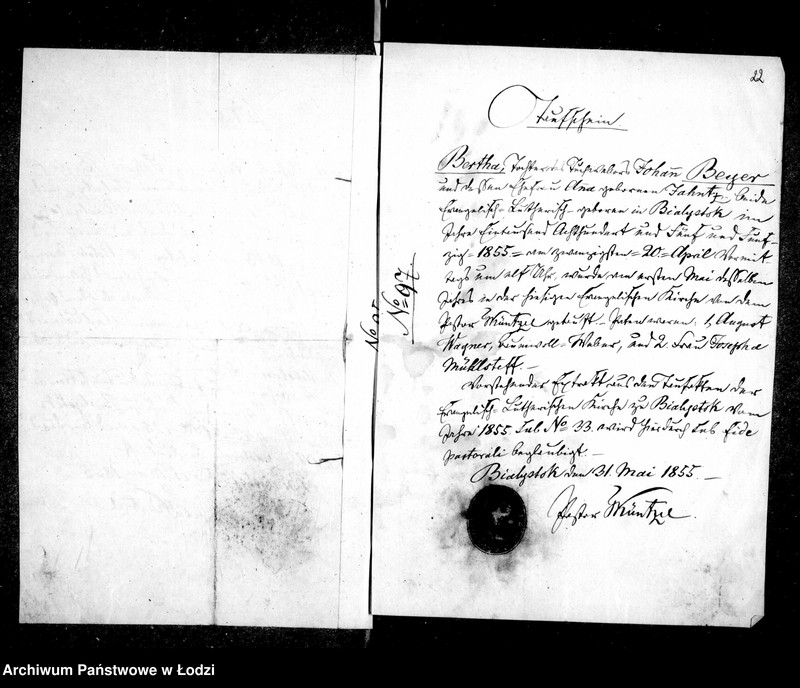 22
Taufschein
Bertha, Tochter des Tuchwebers Johañ Beyer
und dessen Ehefrau Ana gebornen Jahntz, beide
Evangelisch-Lutherisch- geboren in Bialystok im
Jahre Eintausend Achthundert und Fünf und Funf-
zig - 1855 = am zwanzigsten = 20 = April Vormit
tags um elf Uhr, wurde am ersten Mai desselben
Jahres in der hiesigen Evangelischen Kirche von dem
Pastor Müntzel getauft. Paten waren: 1, August
Wagner, Baumwoll-Weber, und 2. Frau Josepha
Mühlsteff. -
Vorstehender Extrakt aus den Taufakten der
Evangelisch-Lutherischen Kirche zu Bialystok vom
Jahre 1855. Sub No 33. wird hierdurch sub fide
pastorali beglaubigt. -
Bialystok den 31. Mai 1855. -
Pastor Müntzel.
No 97
Archiwum Państwowe w Łodzi